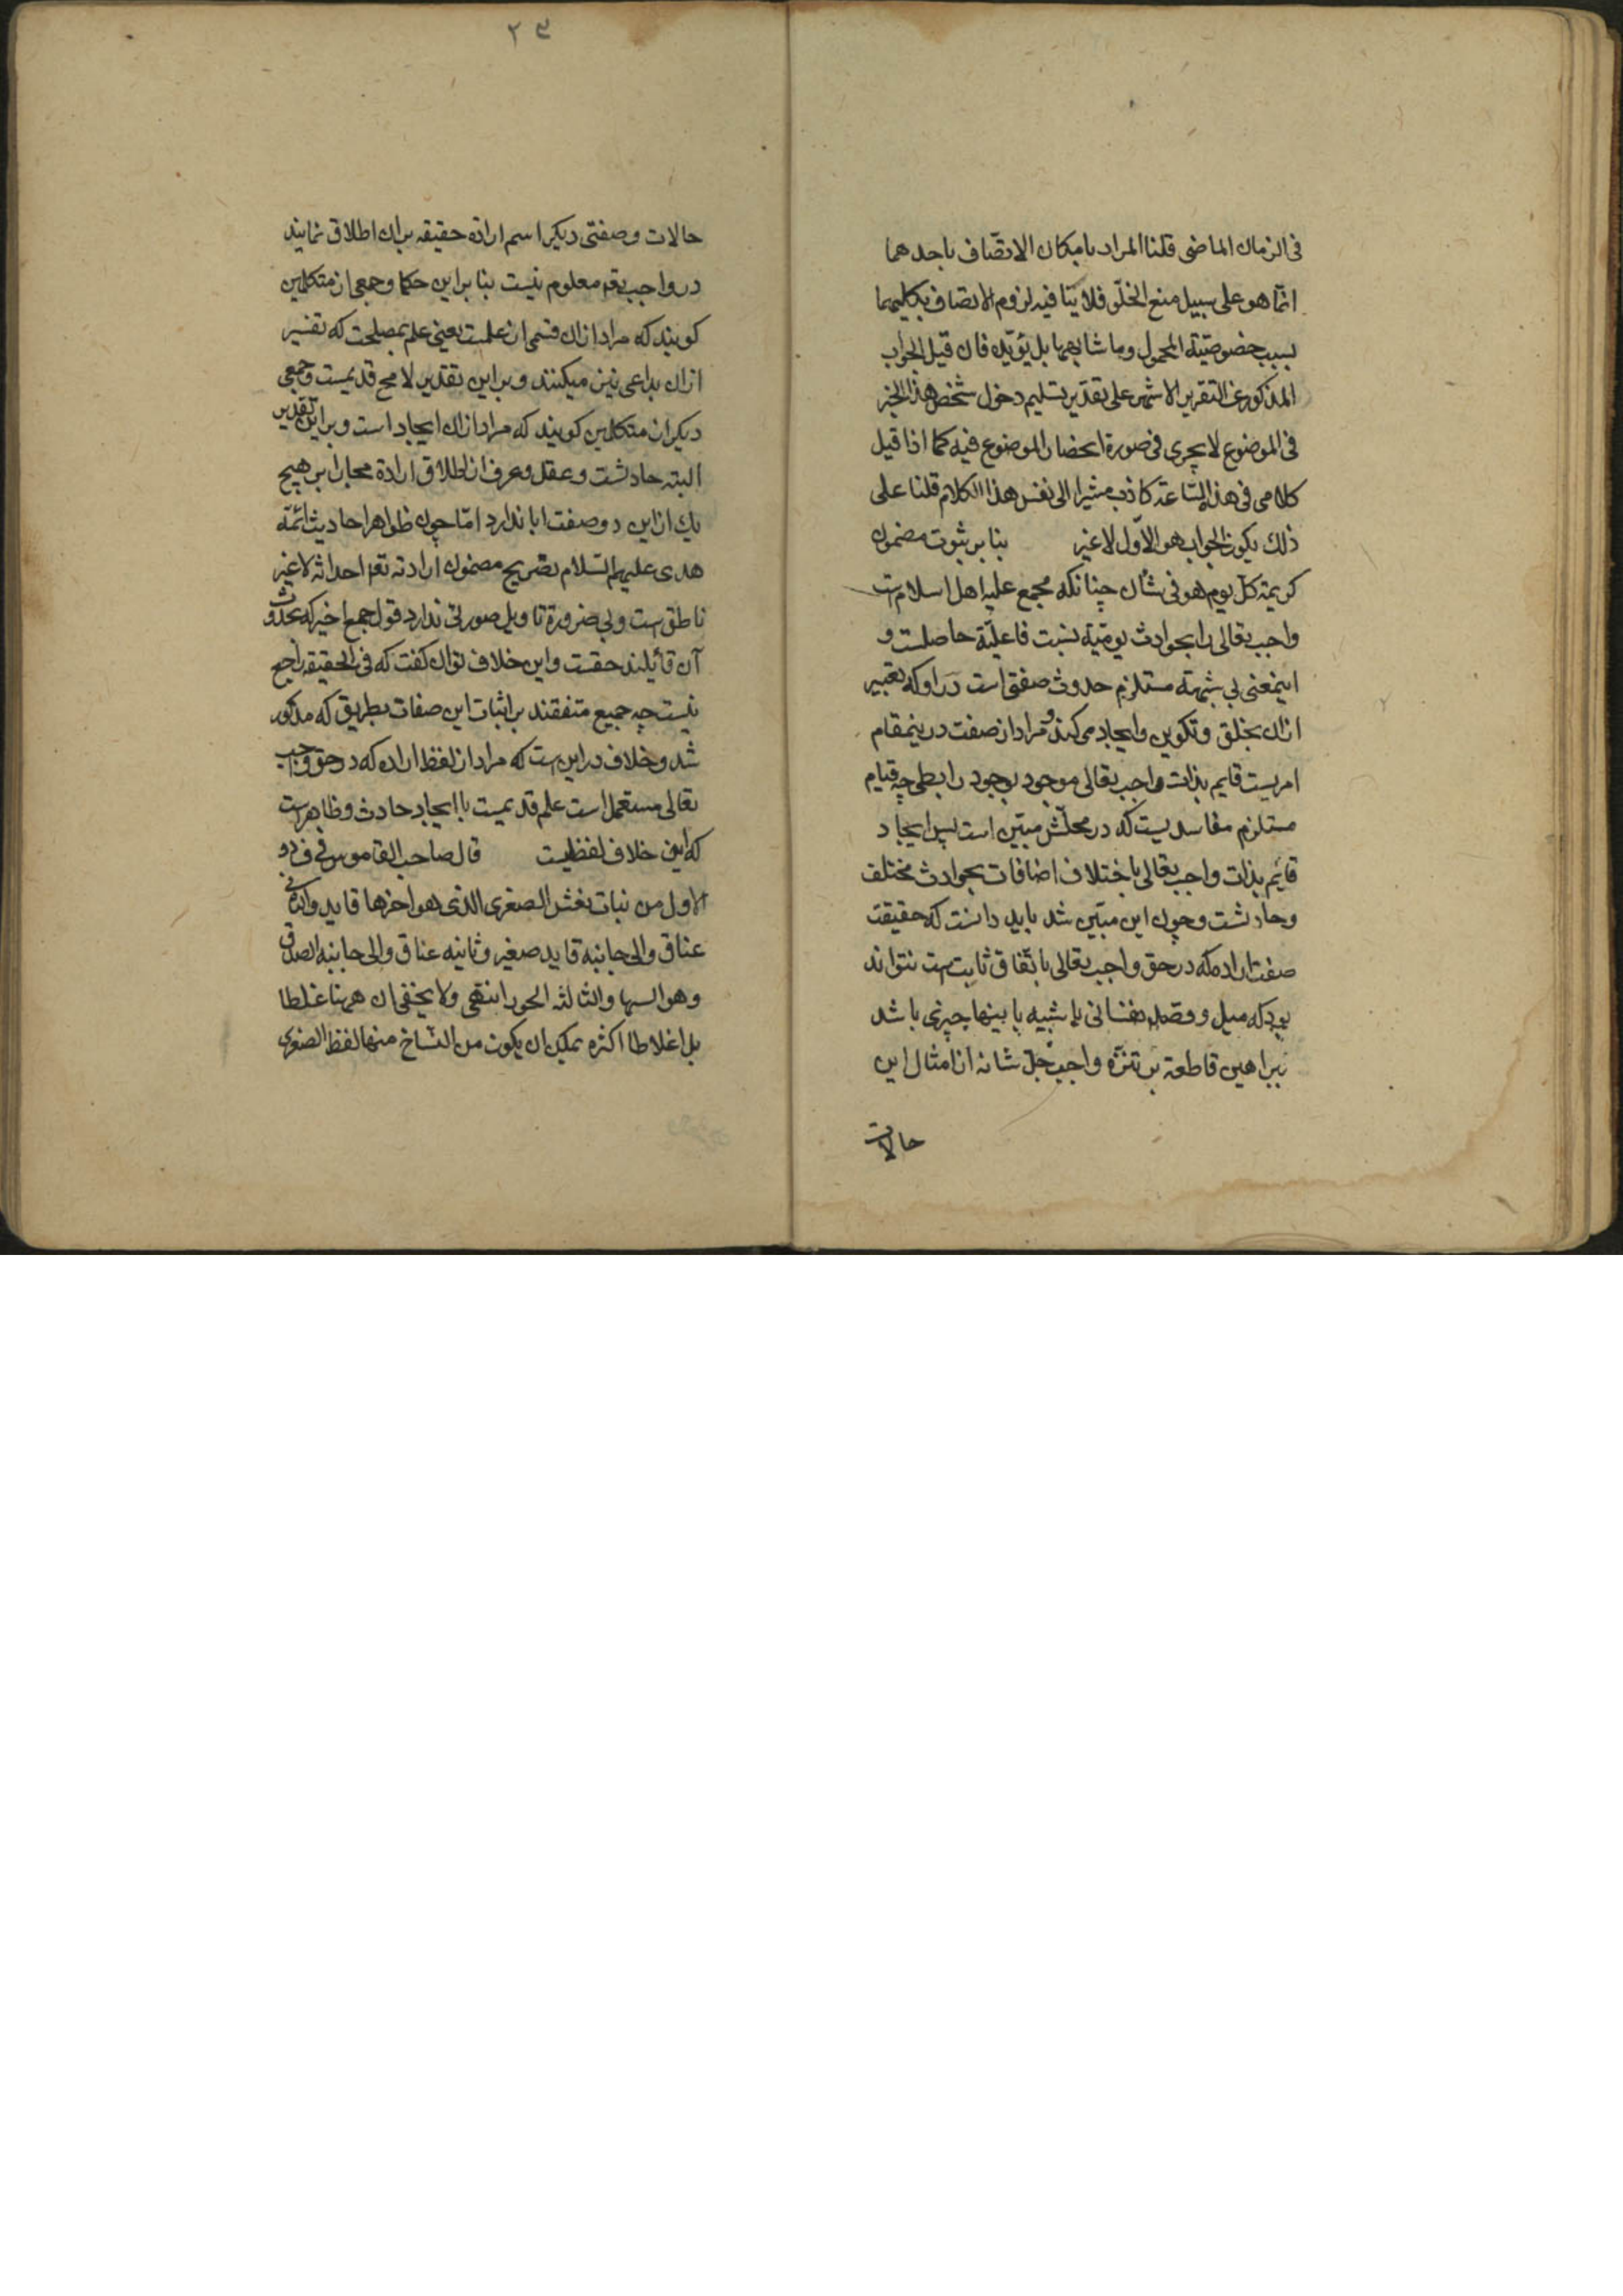 فی الزمان الماضی قلنا المراد بامکان الاتصاف باحدهما
انما هو علی سبیل منع الخلو فلا ینافیه لزوم الاتصاف بکلیهما
بسبب خصوصیة المحمول وما شابهها بل یؤیده فان قیل الجواب
المذکور عن التقریر الاشهر علی تقدیر تسلیم دخول شخص هذا الخبر
فی الموضوع لا یجری فی صورة انحصار الموضوع فیه کما اذا قیل
کلامی فی هذا الساعة کاذب مشیرا الی نفس هذا الکلام قلنا علی
ذلک یکون الجواب هو الاول لا غیر بنا بر ثبوت مضمون
کریمة کل یوم هو فی شأن چنانکه مجمع علیه اهل اسلام است
واجب تعالی را بحوادث یومیة نسبت فاعلیة حاصلست و
اینمعنی بی شبهة مستلزم حدوث صفتی است در او که تعبیر
ازان بخلق و تکوین و ایجاد می کند و مراد از صفت در ینمقام
امریست قایم بذات واجب تعالی موجود بوجود رابطی چه قیام
مستلزم مفاسدیست که در محلش مبین است پس ایجاد
قائم بذات واجب تعالی باختلاف اضافات بحوادث مختلف
وحادثست وچون این مبین شد باید دانست که حقیقت
صفت اراده که در حق واجب تعالی باتفاق ثابت است نتواند
بود که میل و قصد نفسانی یا شبیه باینها چیزی باشد
براهین قاطعة بر تنزه واجب جل شانه از امثال این
حالات
۲۳
حالات وصفتی دیکر اسم اراده حقیقه بران اطلاق نمایند
در واجب تعم معلوم نیست بنابراین حکما وجمعی از متکلمین
کویند که مراد ازان قسمی از علمست یعنی علم بمصلحت که تفسیر
ازان بداعی نیز میکنند وبراین تقدیر لا مح قدیمست وجمعی
دیکر از متکلمین کویند که مراد ازان ایجاد است وبراین تقدیر
البته حادثست وعقل وعرف از اطلاق ارادة مجازا بر هیچ
یک ازاین دو صفت ابا ندارد اما چون ظواهر احادیث ائمه
هدی علیهم السلام بتصریح مضمون ارادته تعم احداثه لا غیر
ناطق است وبی ضرورة تاویل صورتی ندارد قول جمع اخیر که بحدوث
آن قائلند حقست واین خلاف توان کفت که فی الحقیقه راجع
نیست چه جمیع متفقند بر اثبات این صفات بطریق که مذکور
شد وخلاف در این است که مراد از لفظ اراده که در حق واجب
تعالی مستعمل است علم قدیمست یا ایجاد حادث وظاهر است
که این خلاف لفظیست قال صاحب القاموس فی ق و د
الاول من نبات نعش الصغری الذی هو اخرها قاید والثانی
عناق والی جانبه قاید صغیر وثانیه عناق والی جانبه الصدق
وهو السها والثالثه الحور انتهی ولا یخفی ان ههنا غلطا
بل اغلاطا اکثره یمکن ان یکون من النساخ منها لفظ الصغری